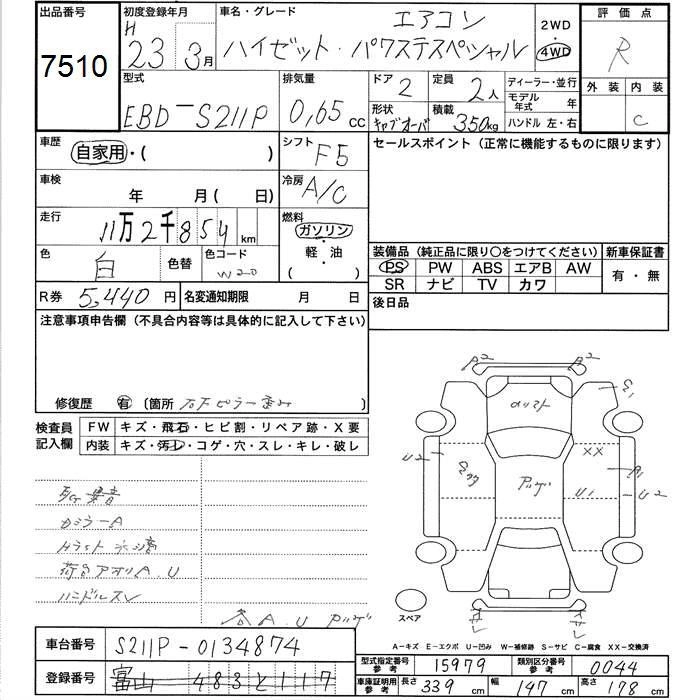 出品番号 7510
初度登録年月 H 23 3月
車名・グレード エアコン
ハイゼット・パワステスペシャル
2WD
4WD
評価点 R
外装 内装 C
型式 EBD-S211P
排気量 0,65 CC
ドア 2
定員 2人
形状 キャブオーバ
積載 350kg
ディーラー・並行
モデル年式 年
ハンドル 左・右
車歴 自家用・( )
シフト F5
車検 年 月(日)
冷房 A/C
走行 11万2千854km
燃料 ガソリン・軽・油 ( )
色 白 色替 色コード W20
R券 5,440円
名変通知期限 月 日
セールスポイント(正常に機能するものに限ります)
装備品(純正品に限り○をつけてください)
新車保証書
PS PW ABS エアB AW
SR ナビ TV カワ
有・無
後日品
注意事項申告欄(不具合内容等は具体的に記入して下さい)
修復歴 有 (箇所 ピラー )
検査員記入欄
FW キズ・飛石・ヒビ割・リペア跡・X要
内装 キズ・汚レ・コゲ・穴・スレ・キレ・破レ
A2 A2
XX
U2 A1
U1 U2
カミラーA
荷台アオリA.U
ハンドルスレ
各A.U
スペア
A−キズ E−エクボ U−凹み W−補修跡 S−サビ C−腐食 XX−交換済
車台番号 S211P-0134874
登録番号 富山 483と117
型式指定番号 参考 15979
類別区分番号 参考 0044
車庫証明用 参考 長さ 339cm 幅 147cm 高さ 178cm